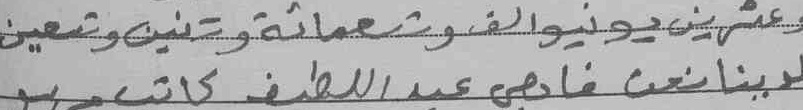 وعشرين يونيو الف وتسعمائة وتنين وتسعين
لدينا نحن فادي عبد اللطيف كاتب